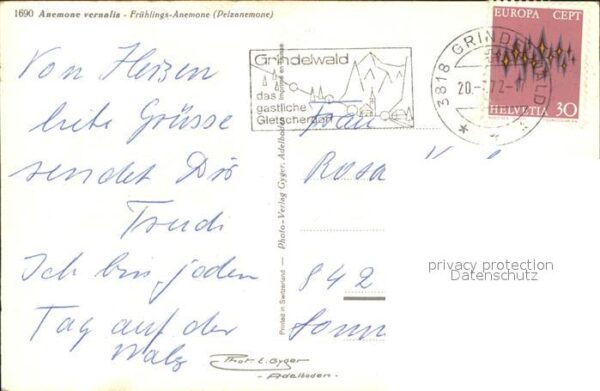 1690 Anemone vernalis - Frühlings-Anemone (Pelzanemone)
Von Herzen
liebe Grüsse
sendet Dir
Trudi
Ich bin jeden
Tag auf der
Walz
Phot. E. Gyger
- Adelboden -
Printed in Switzerland — Photo-Verlag Gyger, Adelboden — Imprimé en Suisse
Grindelwald
das
gastliche
Gletscherdorf
3818 GRINDELWALD
20.
72-
EUROPA CEPT
HELVETIA 30
Frau
Rosa
842
Sonn
privacy protection
Datenschutz